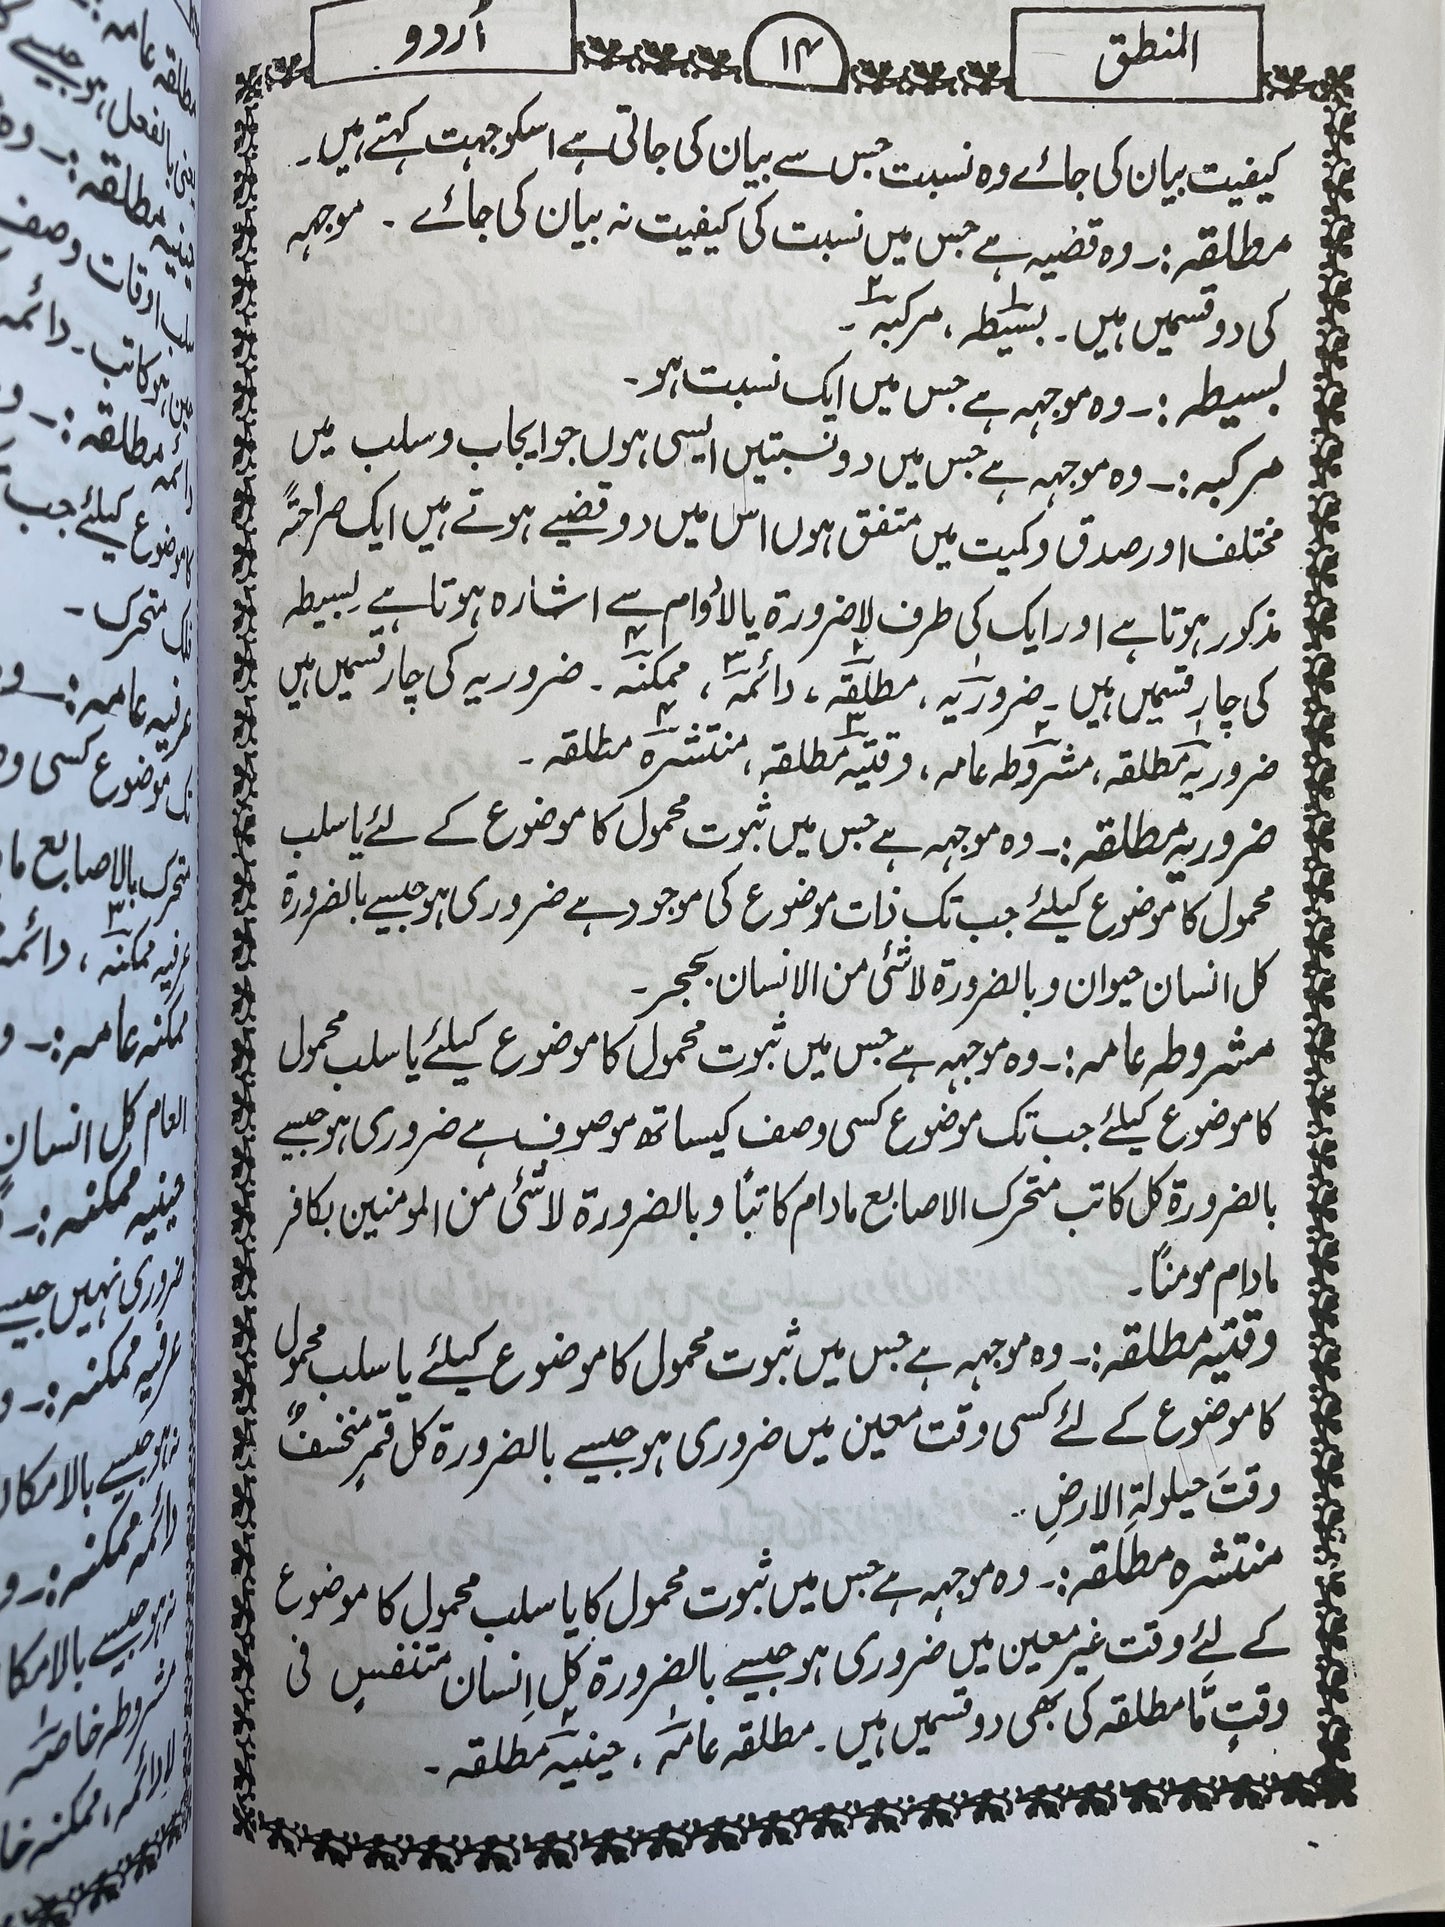 المنطق
۱۴
اُردو
کیفیت بیان کی جائے وہ نسبت جس سے بیان کی جاتی ہے اسکو جہت کہتے ہیں۔
مطلقہ :۔ وہ قضیہ ہے جس میں نسبت کی کیفیت نہ بیان کی جائے ۔ موجہہ
کی دو قسمیں ہیں۔ بسیطہ۱ ، مرکبہ۲ ۔
بسیطہ :۔ وہ موجہہ ہے جس میں ایک نسبت ہو۔
مرکبہ :۔ وہ موجہہ ہے جس میں دو نسبتیں ایسی ہوں جو ایجاب و سلب میں
مختلف اور صدق و کمیت میں متفق ہوں اس میں دو قضیے ہوتے ہیں ایک صراحتہً
مذکور ہوتا ہے اور ایک کی طرف لاضرورۃ یا لادوام سے اشارہ ہوتا ہے بسیطہ
کی چار قسمیں ہیں۔ ضروریہ۱ ، مطلقہ۲ ، دائمہ۳ ، ممکنہ۴ ۔ ضروریہ کی چار قسمیں ہیں
ضروریہ۱ مطلقہ ، مشروطہ۲ عامہ ، وقتیہ۳ مطلقہ ، منتشرہ۴ مطلقہ ۔
ضروریہ مطلقہ :۔ وہ موجہہ ہے جس میں ثبوت محمول کا موضوع کے لئے یا سلب
محمول کا موضوع کیلئے جب تک ذات موضوع کی موجود ہے ضروری ہو جیسے بالضرورۃ
کل انسان حیوان و بالضرورۃ لا شئی من الانسان بحجر ۔
مشروطہ عامہ :۔ وہ موجہہ ہے جس میں ثبوت محمول کا موضوع کیلئے یا سلب محمول
کا موضوع کیلئے جب تک موضوع کسی وصف کیساتھ موصوف ہے ضروری ہو جیسے
بالضرورۃ کل کاتب متحرک الاصابع مادام کاتباً و بالضرورۃ لا شئی من المومنین بکافر
مادام مومناً۔
وقتیہ مطلقہ :۔ وہ موجہہ ہے جس میں ثبوت محمول کا موضوع کیلئے یا سلب محمول
کا موضوع کے لئے کسی وقت معین میں ضروری ہو جیسے بالضرورۃ کل قمرٍ منخسفٌ
وقتَ حیلولۃِ الارضِ ۔
منتشرہ مطلقہ :۔ وہ موجہہ ہے جس میں ثبوت محمول کا یا سلب محمول کا موضوع
کے لئے وقت غیر معین میں ضروری ہو جیسے بالضرورۃ کل انسان متنفس فی
وقتٍ مّا مطلقہ کی بھی دو قسمیں ہیں۔ مطلقہ عامہ۱ ، حینیہ۲ مطلقہ ۔